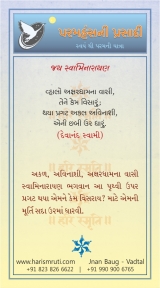 પરબ્રહ્મની પ્રસાદી
જય સ્વામિનારાયણ
વ્હાલો અક્ષરધામના વાસી,
તેને કેમ વિસારું;
થયા પ્રગટ અકળ અવિનાશી,
એની છબી ઉરે ધારું.
(દેવાનંદ સ્વામી)
॥ હરિ સ્મૃતિ ॥
અકળ, અવિનાશી, અક્ષરધામના વાસી
સ્વામિનારાયણ ભગવાન આ પૃથ્વી ઉપર
પ્રગટ થયા એમને કેમ વિસરાય? માટે એમની
મૂર્તિ સદા ઉરમાં ધારવી.
॥ હરિ સ્મૃતિ ॥
www.harismruti.com Jnan Baug - Vadtal
+91 823 826 6622 | +91 990 900 6765